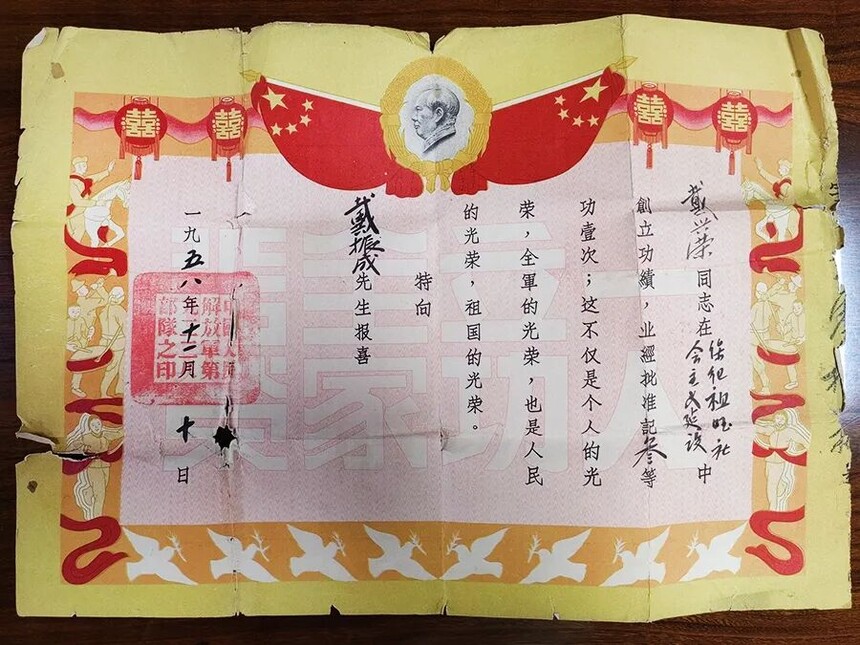 囍 囍 囍 囍
戴兴荣同志在保卫祖国社会主义建设中
創立功績，业經批准記叁等
功壹次；这不仅是个人的光
荣，全軍的光荣，也是人民
的光荣，祖国的光荣。
特向
戴振成先生报喜
一九五八年十一月十日
解放軍第
部隊之印